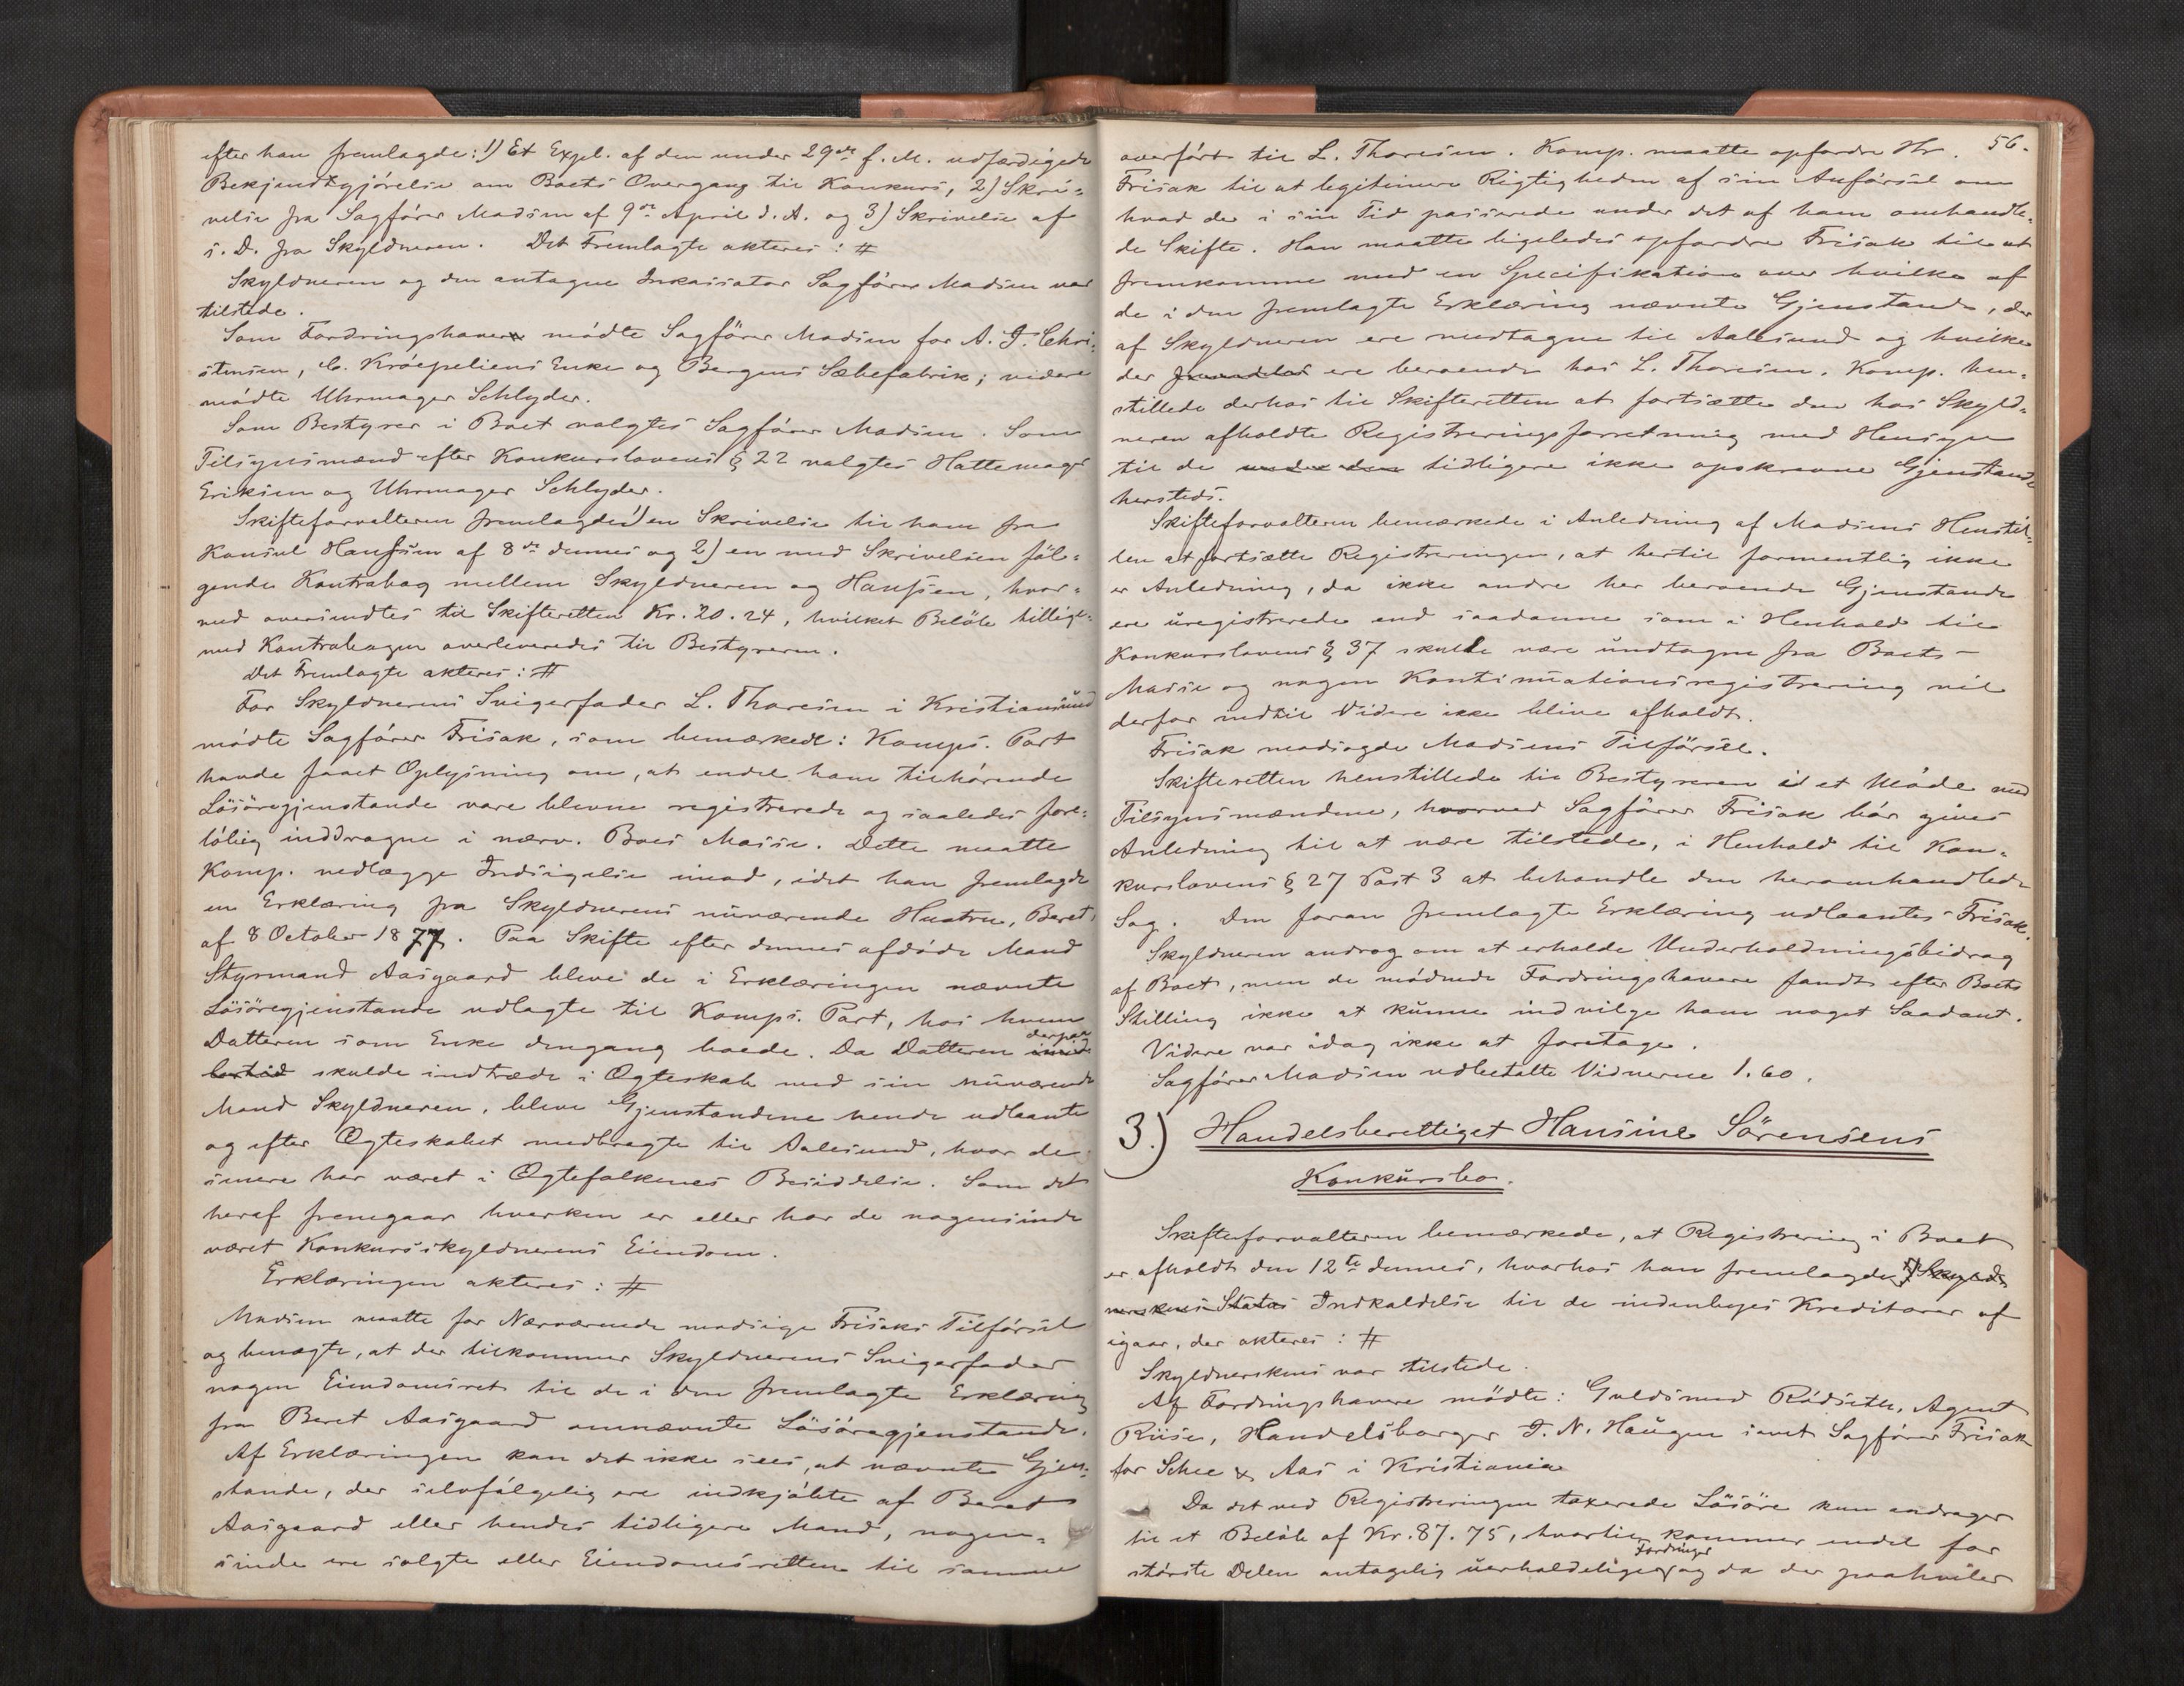 efter han fremlagde: 1) Et Expl. af den under 29de f. M. udfærdigede
Bekjendtgjörelse om Boets Overgang til Konkurs, 2) Skri=
velse fra Sagförer Madsen af 9de April d. A. og 3) Skrivelse af
s. D. fra Skyldneren. Det Fremlagte akteres: #
Skyldneren og den antagne Inkassator Sagförer Madsen var
tilstede.
Som Fordringshavere mödte Sagförer Madsen for A. J. Chri=
stensen, C. Kröepeliens Enke og Bergens Sæbefabrik; videre
mödte Uhrmager Schlyder.
Som Bestyrer i Boet valgtes Sagförer Madsen. Som
Tilsynsmænd efter Konkurslovens § 22 valgtes Hattemager
Eriksen og Uhrmager Schlyder.
Skifteforvalteren fremlagde 1) en Skrivelse til ham fra
Konsul Hanssen af 8de dennes og 2) en med Skrivelsen föl=
gende Kontrabog mellem Skyldneren og Hanssen, hvor=
med oversendtes til Skifteretten Kr. 20.24, hvilket Belöb tillige=
med Kontrabogen overleveredes til Bestyreren.
Det Fremlagte akteres: #
For Skyldnerens Svigerfader L. Thoresen i Kristiansund
mödte Sagförer Frisak, som bemærkede: Komps. Part
havde faaet Oplysning om, at endel ham tilhörende
Lösöregjenstande vare blevne registrerede og saaledes fore=
löbig inddragne i nærv. Boes Masse. Dette maatte
Komp. nedlægge Indsigelse imod, idet han fremlagde
en Erklæring fra Skyldnerens nuværende Hustru, Beret,
af 8 October 1877. Paa Skifte efter dennes afdöde Mand
Styrmand Aasgaard bleve de i Erklæringen nævnte
Lösöregjenstande udlagte til Komps. Part, hos hvem
Datteren som Enke dengang boede. Da Datteren derpaa imid
lertid skulde indtræde i Ægteskab med sin nuværende
Mand Skyldneren, bleve Gjenstandene hende udlaante
og efter Ægteskabet medbragte til Aalesund, hvor de
senere har været i Ægtefolkenes Besiddelse. Som det
heraf fremgaar hverken er eller har de nogensinde
været Konkursskyldnerens Eiendom.
Erklæringen akteres: #
Madsen maatte for Nærværende modsige Frisaks Tilförsel
og benægte, at der tilkommer Skyldnerens Svigerfader
nogen Eiendomsret til de i den fremlagte Erklæring
fra Beret Aasgaard omnævnte Lösöregjenstande.
Af Erklæringen kan det ikke sees, at nævnte Gjen=
stande, der selvfölgelig ere indkjöbte af Beret
Aasgaard eller hendes tidligere Mand, nogen=
sinde ere solgte eller Eiendomsretten til samme
56.
overfört til L. Thoresen. Komp. maatte opfordre Hr.
Frisak til at legitimere Rigtigheden af sin Anförsel om
hvad der i sin Tid passerede under det af ham omhandle=
de Skifte. Han maatte ligeledes opfordre Frisak til at
fremkomme med en Specifikation over hvilke af
de i den fremlagte Erklæring nævnte Gjenstande, der
af Skyldneren ere medtagne til Aalesund og hvilke
der ere beroende hos L. Thoresen. Komp. hen=
stillede derhos til Skifteretten at fortsætte den hos Skyld=
neren afholdte Registreringsforretning med Hensyn
til de under den tidligere ikke opskrevne Gjenstande
hersteds.
Skifteforvalteren bemærkede i Anledning af Madsens Henstil=
len at fortsætte Registreringen, at hertil formentlig ikke
er Anledning, da ikke andre her beroende Gjenstande
ere uregistrerede end saadanne som i Henhold til
Konkurslovens § 37 skulle være undtagne fra Boets
Masse og nogen Kontinuationsregistrering vil
derfor indtil Videre ikke blive afholdt.
Frisak modsagde Madsens Tilförsel.
Skifteretten henstillede til Bestyreren i et Möde med
Tilsynsmændene, hvorved Sagförer Frisak bör gives
Anledning til at være tilstede, i Henhold til Kon=
kurslovens § 27 Post 3 at behandle den heromhandlede
Sag. Den foran fremlagte Erklæring udlaantes Frisak.
Skyldneren androg om at erholde Underholdningsbidrag
af Boet, men de mödende Fordringshavere fandt efter Boets
Stilling ikke at kunne indvilge ham noget Saadant.
Videre var idag ikke at foretage.
Sagförer Madsen udbetalte Vidnerne 1.60.
3.) Handelsberettiget Hansine Sörensens
Konkursbo.
Skifteforvalteren bemærkede, at Registrering i Boet
er afholdt den 12te dennes, hvorhos han fremlagde 1) Skyld
nerskens Status Indkaldelse til de indenbyes Kreditorer af
igaar, der akteres: #
Skyldnersken var tilstede.
Af Fordringshavere mödte: Guldsmed Rödseth, Agent
Riise, Handelsborger J. N. Haugen samt Sagförer Frisak
for Schee & Aas i Kristiania
Da det ved Registreringen taxerede Lösöre kun andrager
til et Belöb af Kr. 87.75, hvortil kommer endel for
störste Delen antagelig uerholdelige Fordringer og da der paahviler